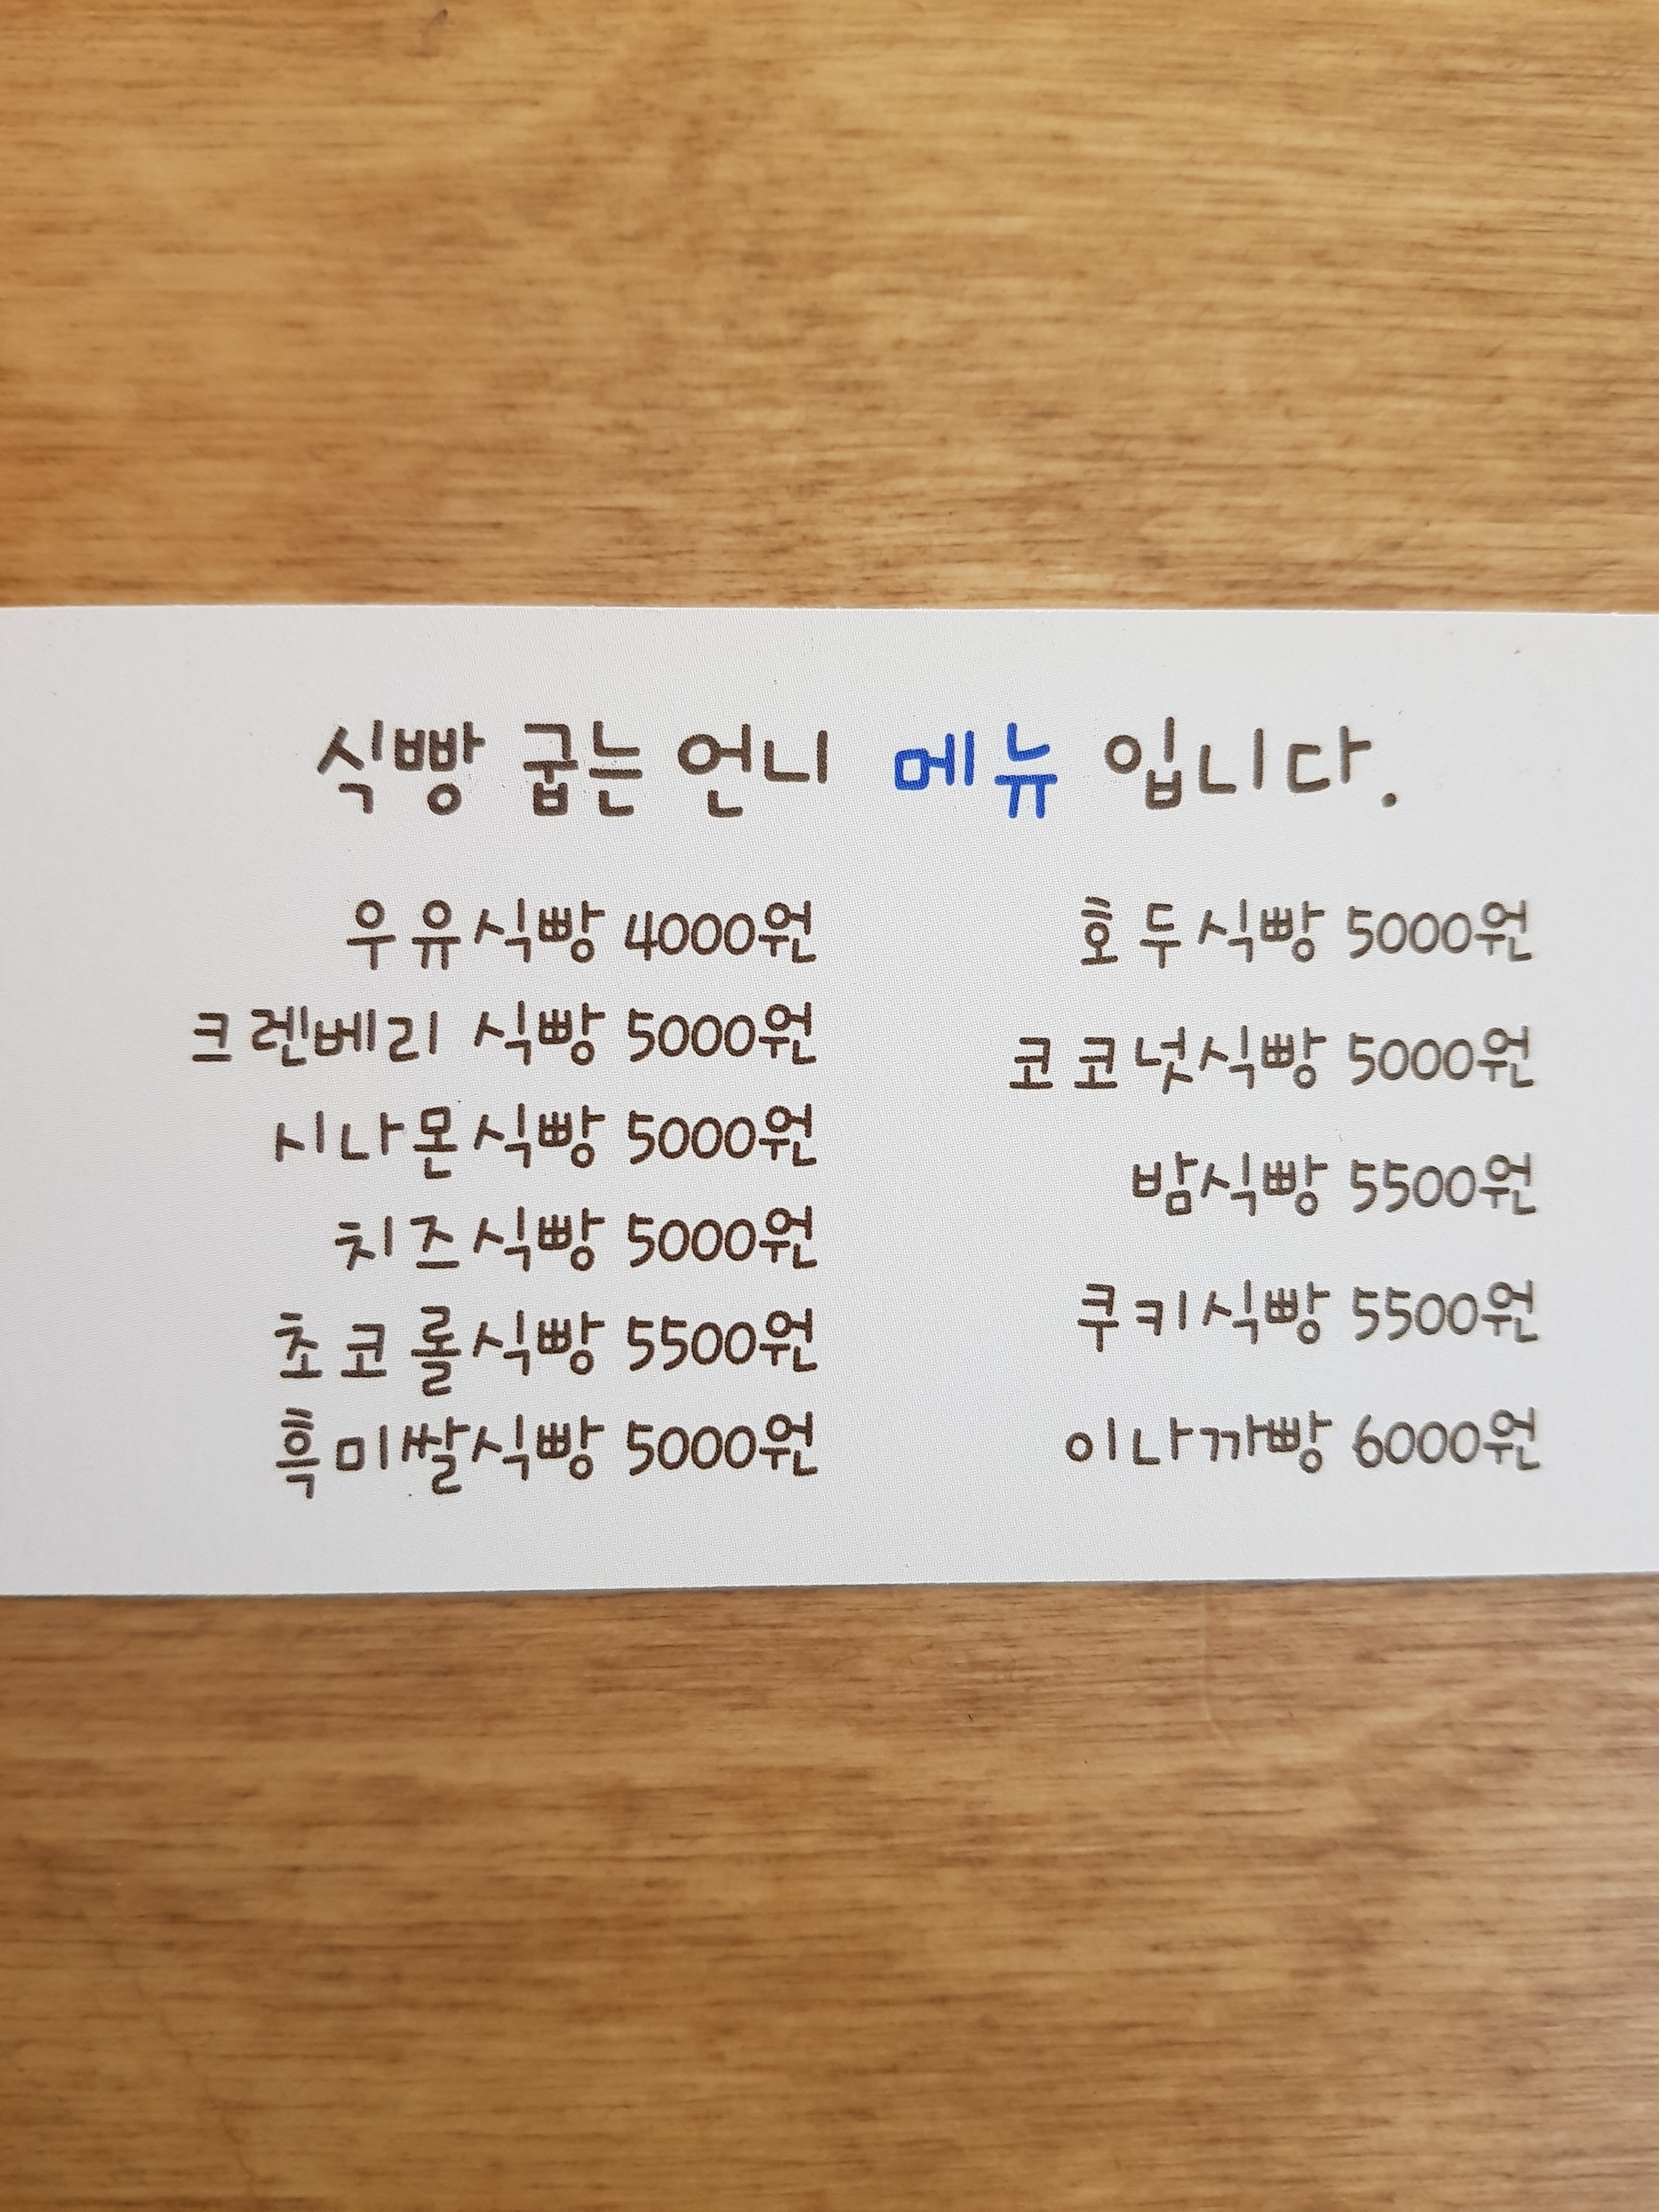 식빵 굽는 언니 메뉴 입니다.
우유식빵 4000원
크렌베리 식빵 5000원
시나몬식빵 5000원
치즈식빵 5000원
초코롤식빵 5500원
흑미쌀식빵 5000원
호두식빵 5000원
코코넛식빵 5000원
밤식빵 5500원
쿠키식빵 5500원
이나까빵 6000원